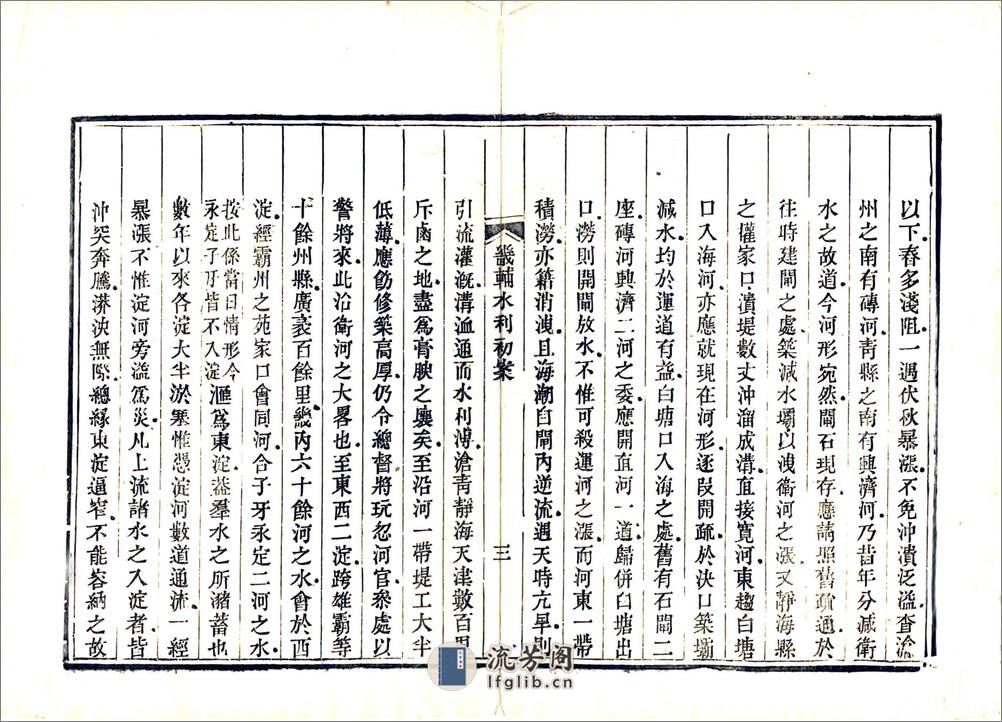 以下春多淺阻一遇伏秋暴漲不免沖潰泛溢查滄
州之南有磚河青縣之南有興濟河乃昔年分減衛
水之故道今河形宛然閘石現存應請照舊疏通於
往時建閘之處築減水壩以洩衛河之漲又靜海縣
之權家口潰堤數丈沖溜成溝直接寬河東趨白塘
口入海河亦應就現在河形逐段開疏於決口築壩
減水均於運道有益白塘口入海之處舊有石閘二
座磚河興濟二河之委應開直河一道歸併白塘出
口澇則開閘放水不惟可殺運河之漲而河東一帶
積澇亦籍消洩且海潮自閘內逆流遇天時亢旱則
畿輔水利初案
三
引流灌溉溝洫通而水利溥滄青靜海天津數百里
斥鹵之地盡為膏腴之壤矣至沿河一帶堤工大半
低薄應飭修築高厚仍令總督將玩忽河官參處以
警將來此沿衛河之大畧也至東西二淀跨雄霸等
十餘州縣廣袤百餘里畿內六十餘河之水會於西
淀經霸州之苑家口會同河合子牙永定二河之水
按此係當日情形今
永定子牙皆不入淀
滙為東淀葢羣水之所瀦蓄也
數年以來各淀大半淤塞惟憑淀河數道通流一經
暴漲不惟淀河旁溢為災凡上流諸水之入淀者皆
沖突奔騰漭泱無際總緣東淀逼窄不能容納之故
流芳阁
lfglib.cn